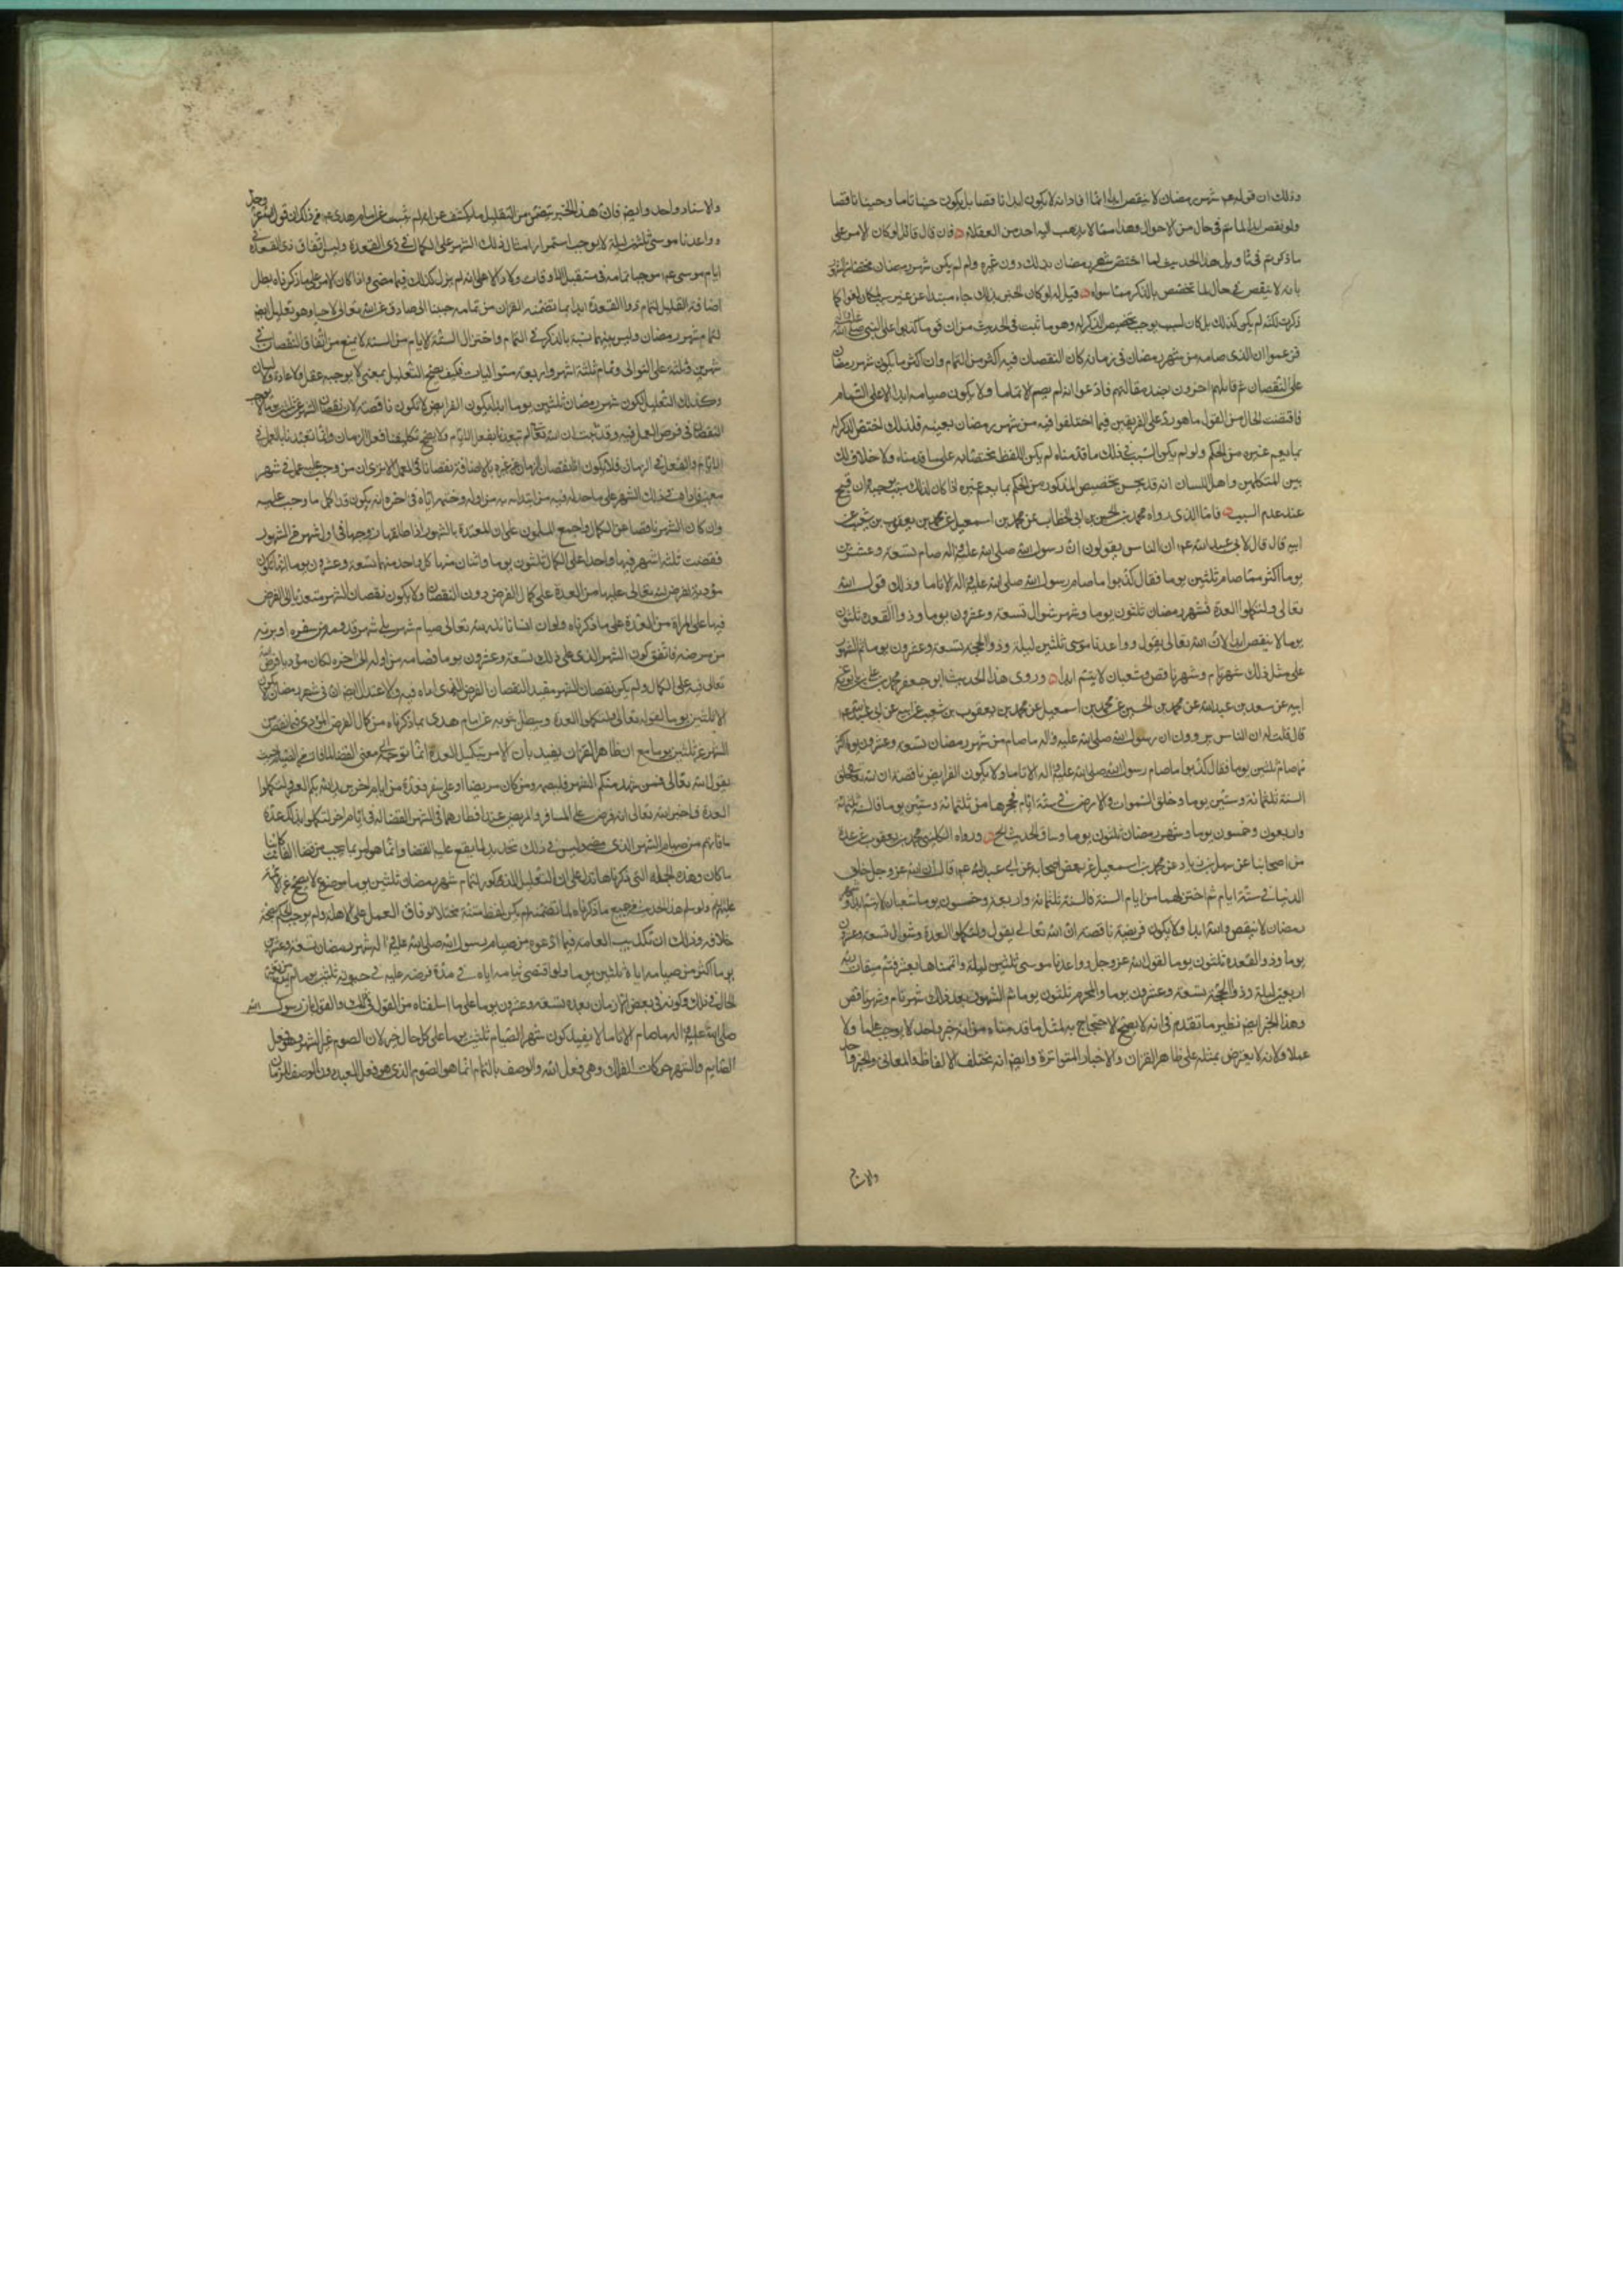 وذلك ان قوله عم شهر رمضان لا ينقص ابدا انما افاد انه لا يكون ابدا ناقصا بل يكون حينا تاما وحينا ناقصا
ولو نقص ابدا لما تم في حال من الاحوال وهذا مما لا يذهب اليه احد من العقلاء فان قال قائل لو كان الامر على
ما ذكرتم في تاويل هذا الحديث لما اختص شهر رمضان بذلك دون غيره ولم لم يكن شهر رمضان مختصا
بانه لا ينقص في حال لما تخصص بالذكر مما سواه قيل له لو كان الخبر بذلك جاء مبتدا عن غير سبب لكان لغوا كما
ذكرت لكنه لم يكن كذلك بل كان لسبب يوجب تخصيص الذكر له وهو ما ثبت في الحديث من ان قوما كذبوا على النبي صلى الله عليه واله
فزعموا ان الذى صامه من شهر رمضان في زمانه كان النقصان فيه اكثر من التمام وان اكثر ما يكون شهر رمضان
على النقصان ثم قابلهم اخرون بضد مقالهم فادعوا انه لم يصم الا تماما ولا يكون صيامه ابدا الا على التمام
فاقتضت الحال من القول ما هو رد على الفريقين فيما اختلفوا فيه من شهر رمضان بعينه فلذلك اختص الذكر له
بما يعم غيره من الحكم ولو لم يكن السبب في ذلك ما قدمناه لم يكن اللفظ مختصا به على ما قدمناه ولا خلاف
بين المتكلمين واهل اللسان انه قد يحسن تخصيص المذكور من الحكم بما يعم غيره اذا كان لذلك سبب يوجبه وان قبح
عند عدم السبب فاما الذى رواه محمد بن الحسين بن ابى الخطاب عن محمد بن اسمعيل عن محمد بن يعقوب بن شعيب عن
ابيه قال قال لابى عبد الله عم ان الناس يقولون ان رسول الله صلى الله عليه واله صام تسعة وعشرين
يوما اكثر مما صام ثلثين يوما فقال كذبوا ما صام رسول الله صلى الله عليه واله الا تاما وذلك قول الله
تعالى ولتكملوا العدة فشهر رمضان ثلثون يوما وشهر شوال تسعة وعشرون يوما وذو القعدة ثلثون
يوما لا ينقص ابدا لان الله تعالى يقول وواعدنا موسى ثلثين ليلة وذو الحجة تسعة وعشرون يوما ثم الشهور
على مثل ذلك شهر تام وشهر ناقص وشعبان لا يتم ابدا وروى هذا الحديث ابو جعفر محمد بن على بن بابويه عن
ابيه عن سعد بن عبد الله عن محمد بن الحسين عن محمد بن اسمعيل عن محمد بن يعقوب بن شعيب عن ابيه عن ابى عبد الله عم
قال قلت له ان الناس يروون ان رسول الله صلى الله عليه واله ما صام من شهر رمضان تسعة وعشرون يوما اكثر
مما صام ثلثين يوما فقال كذبوا ما صام رسول الله صلى الله عليه واله الا تاما ولا يكون الفرايض ناقصة ان الله تعالى خلق
السنة ثلثمائة وستين يوما وخلق السموات والارض في ستة ايام فحجزها من ثلثمائة وستين يوما فالسنة ثلثمائة
واربعون وخمسون يوما وشهر رمضان ثلثون يوما وساق الحديث الخ ورواه الكلينى محمد بن يعقوب عن عدة
من اصحابنا عن سهل بن زياد عن محمد بن اسمعيل عن بعض اصحابه عن ابى عبد الله عم قال ان الله عز وجل خلق
الدنيا في ستة ايام ثم اختزلها من ايام السنة فالسنة ثلثمائة واربعة وخمسون يوما شعبان لا يتم ابدا وشهر
رمضان لا ينقص والله ابدا ولا يكون فريضة ناقصة ان الله تعالى يقول ولتكملوا العدة وشوال تسعة وعشرون
يوما وذو القعدة ثلثون يوما لقول الله عز وجل وواعدنا موسى ثلثين ليلة واتممناها بعشر فتم ميقات ربه
اربعين ليلة وذو الحجة تسعة وعشرون يوما والمحرم ثلثون يوما ثم الشهور بعد ذلك شهر تام وشهر ناقص
وهذا الخبر ايضا نظير ما تقدم في انه لا يصح الاحتجاج به لمثل ما قدمناه من انه خبر واحد لا يوجب علما ولا
عملا ولانه لا يعترض بمثله على ظاهر القران والاخبار المتواترة وايضا انه مختلف الالفاظ والمعانى والخبر واحد
والاسناد واحد وايضا فان هذا الخبر يتضمن من التعليل ما يكشف عن انه لم يثبت عن امام هدى عم من ذلك ان قول الله عز وجل
وواعدنا موسى ثلثين ليلة لا يوجب استمرار امثال ذلك الشهر على الكمال في ذى القعدة وليس اتفاق ذى القعدة في
ايام موسى عم موجبا تمامه في مستقبل الاوقات ولا دالا على انه لم يزل كذلك فيما مضى واذا كان الامر على ما ذكرناه بطل
اضافة التعليل لتمام ذو القعدة ابدا بما تضمنه القران من تمامه حينا الى صادق عن الله تعالى لا سيما وهو تعليل ايضا
لتمام شهر رمضان وليس بينهما نسبة بالذكر في التمام واختزال الستة الايام من السنة لا يمنع من اتفاق النقصان في
شهرين وثلثة على التوالى وتمام ثلثة اشهر واربعة متواليات فكيف يصح التعليل بمعنى لا يوجبه عقل ولا عادة ولا لسان
وكذلك التعليل لكون شهر رمضان ثلثين يوما ابدا بكون الفرايض لا تكون ناقصة لان نقصان الشهر عن ثلثين يوما لا يوجب
النقصان في فرض العمل فيه وقد ثبت ان الله تعالى لم يتعبدنا بفعل الايام ولا يصح تكليفنا فعل الزمان وانما تعبدنا بالعمل في
الايام والفعل في الزمان فلا يكون اذا نقصان الزمان عن غيره بالاضافة نقصانا في العمل الا ترى ان من وجب عليه عمل في شهر
معين فاداه في ذلك الشهر على ما حد له فيه من ابتدائه به من اوله وختمه اياه في اخره انه يكون قد اكمل ما وجب عليه
وان كان الشهر ناقصا عن الكمال واجمع المسلمون على ان المعتدة بالشهور اذا طلقها زوجها في اول شهر من الشهور
فقضت ثلثة اشهر فيها واحد على الكمال ثلثون يوما واثنان منها كل واحد منهما تسعة وعشرون يوما انها تكون
مؤدية لفرض الله تعالى عليها من العدة على كمال الفرض دون النقصان ولا يكون نقصان الشهر متعديا الى الفرض
فيها على المراة من العدة على ما ذكرناه ولو ان انسانا نذر لله تعالى صيام شهر يلى شهر قدومه من سفره او برئه
من مرضه فاتفق كون الشهر الذى يلى ذلك تسعة وعشرون يوما فصامه من اوله الى اخره لكان مؤديا فرض الله
تعالى فيه على الكمال ولم يكن نقصان الشهر مفيدا لنقصان الفرض الذى اداه فيه ولا اعتدال ايضا ان شهر رمضان لا يكون
الا ثلثين يوما لقوله تعالى ولتكملوا العدة ويبطل ثبوته عن امام هدى بما ذكرناه من كمال الفرض المؤدى فيما نقص من
الشهر عن ثلثين يوما مع ان ظاهر القران يفيد بان الامر بتكميل العدة انما توجه الى معنى القضا لما فات من الصيام حيث
يقول الله تعالى فمن شهد منكم الشهر فليصمه ومن كان مريضا او على سفر فعدة من ايام اخر يريد الله بكم اليسر ولتكملوا
العدة فاخبر الله تعالى انه فرض على المسافر والمريض عند افطارهما في الشهر القضا له في ايام اخر ليكملوا بذلك عدة
ما فاتهم من صيام الشهر الذى مضى وليس في ذلك تحديد لما يقع عليه القضا وانما هو امر بما يجب من قضا الفائت كائنا
ما كان وهذه الجملة التى ذكرناها تدل على ان التعليل المذكور لتمام شهر رمضان ثلثين يوما موضوع لا يصح عن الائمة
عليهم السلام ولو سلم هذا الحديث من جميع ما ذكرناه لما تضمنه لم يكن لفظ متنه مختلا لوفاق العمل على الاهلة ولم يوجب الحكم بصحة
خلافه وذلك ان تكذيب العامة فيما ادعوه من صيام رسول الله صلى الله عليه واله شهر رمضان تسعة وعشرين
يوما اكثر من صيامه اياه ثلثين يوما ولو اقتضى صيامه اياه في مدة فرضه عليه في حيوته ثلثين يوما لم يمنع من تغير
الحال في ذلك وكونه في بعض الازمان بعده تسعة وعشرون يوما على ما اسلفناه من القول في ذلك والقول بان رسول الله
صلى الله عليه واله ما صام الا تاما لا يفيد كون شهر الصيام ثلثين يوما على كل حال لان الصوم غير الشهر وهو فعل
الصايم والشهر حركات الفلك وهى فعل الله والوصف بالتمام انما هو للصوم الذى هو فعل العبد دون الوصف للزمان
والاسناد